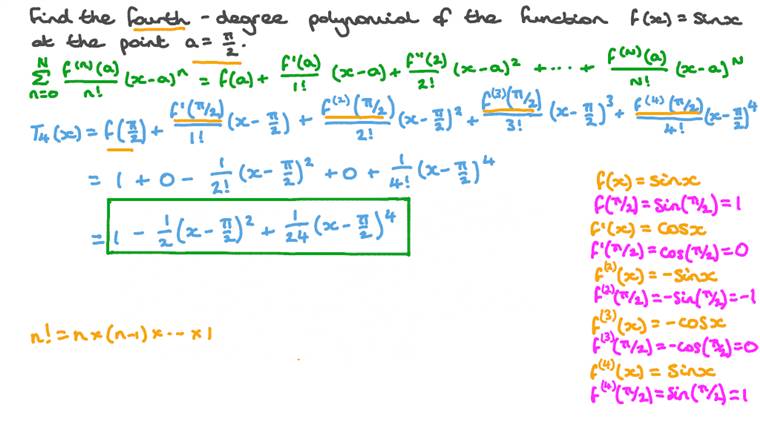 Find the fourth-degree polynomial of the function f(x) = sinx
at the point a = π/2.
∑_{n=0}^{N} f^{(N)}(a)/n! (x-a)^n = f(a) + f'(a)/1! (x-a) + f''(2)/2! (x-a)^2 + ... + f^{(N)}(a)/N! (x-a)^N
T_4(x) = f(π/2) + f'(π/2)/1! (x-π/2) + f^{(2)}(π/2)/2! (x-π/2)^2 + f^{(3)}(π/2)/3! (x-π/2)^3 + f^{(4)}(π/2)/4! (x-π/2)^4
= 1 + 0 - 1/2! (x-π/2)^2 + 0 + 1/4! (x-π/2)^4
= 1 - 1/2 (x-π/2)^2 + 1/24 (x-π/2)^4
f(x) = sinx
f(π/2) = sin(π/2) = 1
f'(x) = cosx
f'(π/2) = cos(π/2) = 0
f^{(2)}(x) = -sinx
f^{(2)}(π/2) = -sin(π/2) = -1
f^{(3)}(x) = -cosx
f^{(3)}(π/2) = -cos(π/2) = 0
f^{(4)}(x) = sinx
f^{(4)}(π/2) = sin(π/2) = 1
n! = n × (n-1) × ... × 1